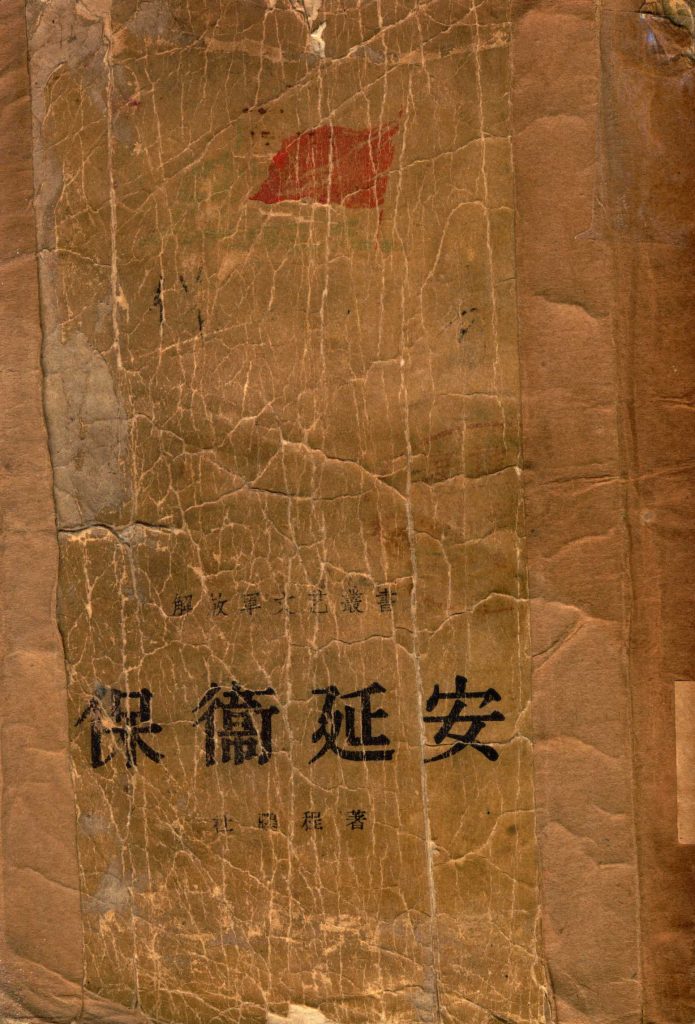 解放軍文艺叢書
保衞延安
杜鵬程著